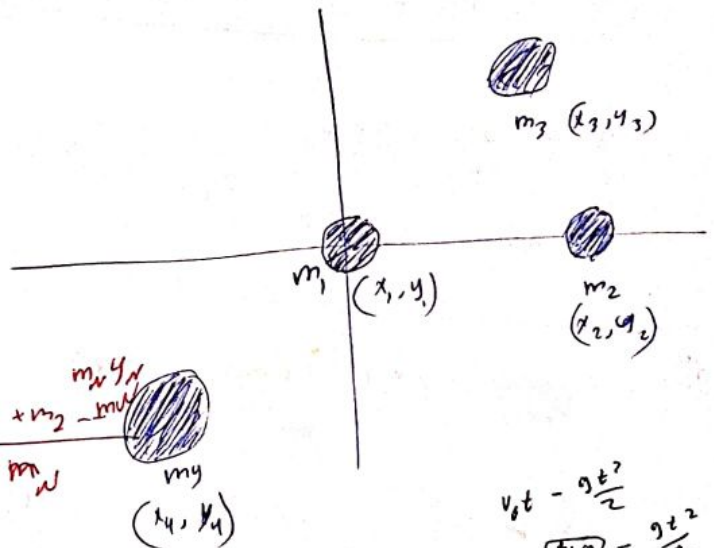 m3 (x3, y3)
m1 (x1, y1)
m2
(x2, y2)
mN yN
+ m2 -
mN
my
(x4, y4)
v0t - gt²/2